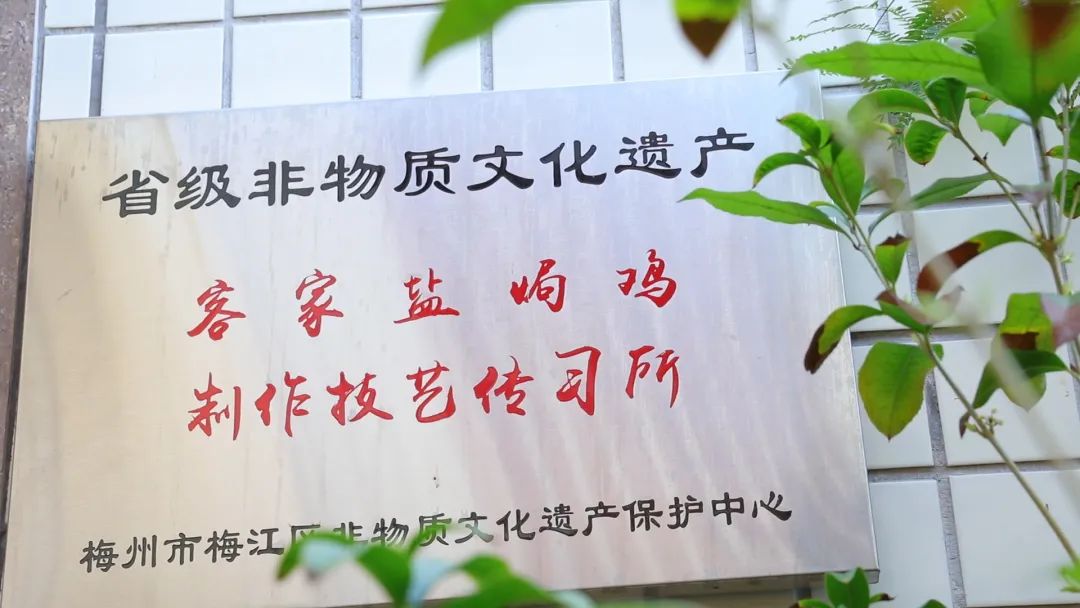 省级非物质文化遗产
客家盐焗鸡
制作技艺传习所
梅州市梅江区非物质文化遗产保护中心